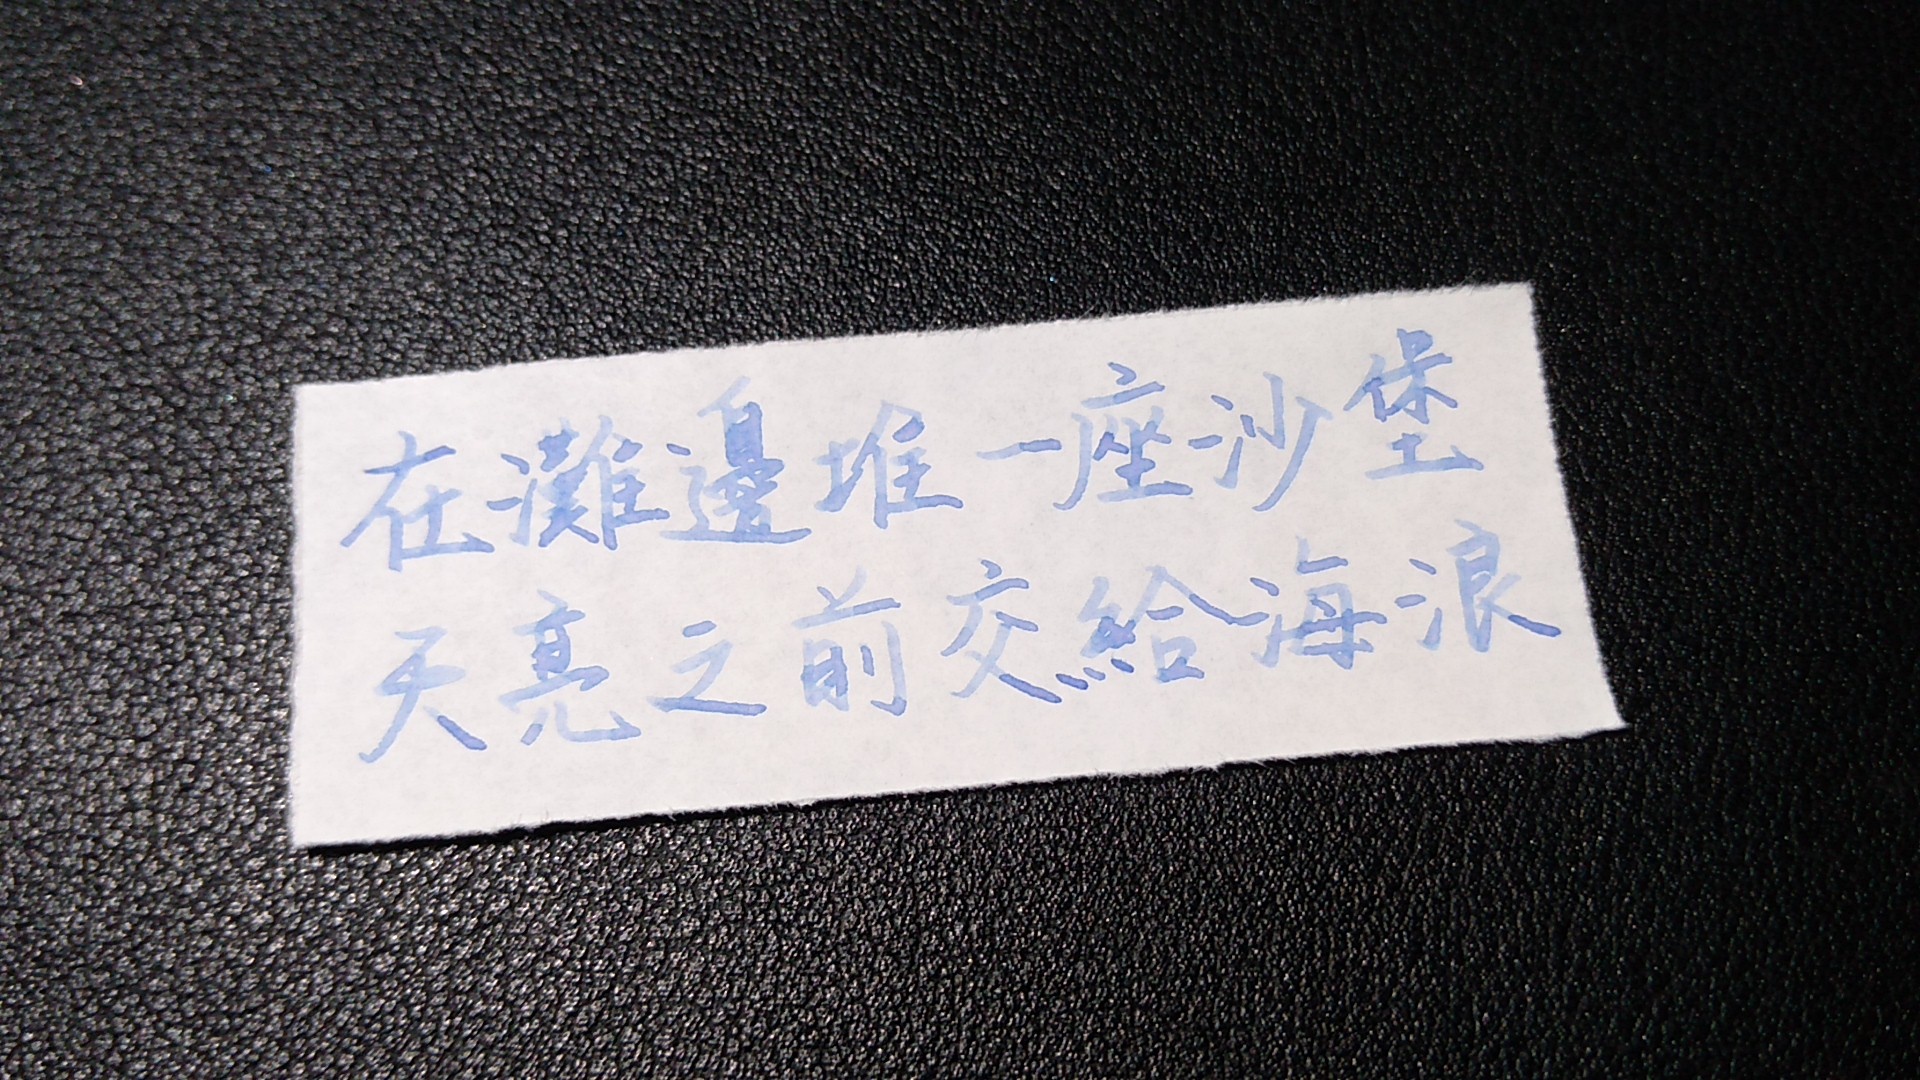 在灘邊堆一座沙堡
天亮之前交給海浪